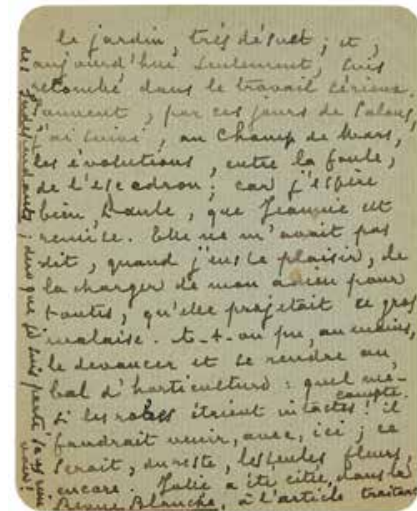 le jardin, très désuet ; et,
aujourd'hui seulement, suis
retombé dans le travail sérieux.
, par ces jours de Salons,
j'ai suivi, au Champ de Mars,
les évolutions, entre la foule,
de l'escadron ; car j'espère
bien, Paule, que Jeannie est
remise. Elle ne m'avait pas
dit, quand j'eus le plaisir, de
la charger de mon adieu pour
toutes, qu'elle projetait ce gros
malaise. A-t-on pu, au moins,
le devancer et se rendre au
bal d'horticulture : quel mé-
compte.
si les robes étaient intactes ! il
faudrait venir, avec, ici ; ce
serait, du reste, les seules fleurs,
encore. Julie a été citée, dans la
Revue Blanche, à l'article traitant
des Indépendants ; dont je suis